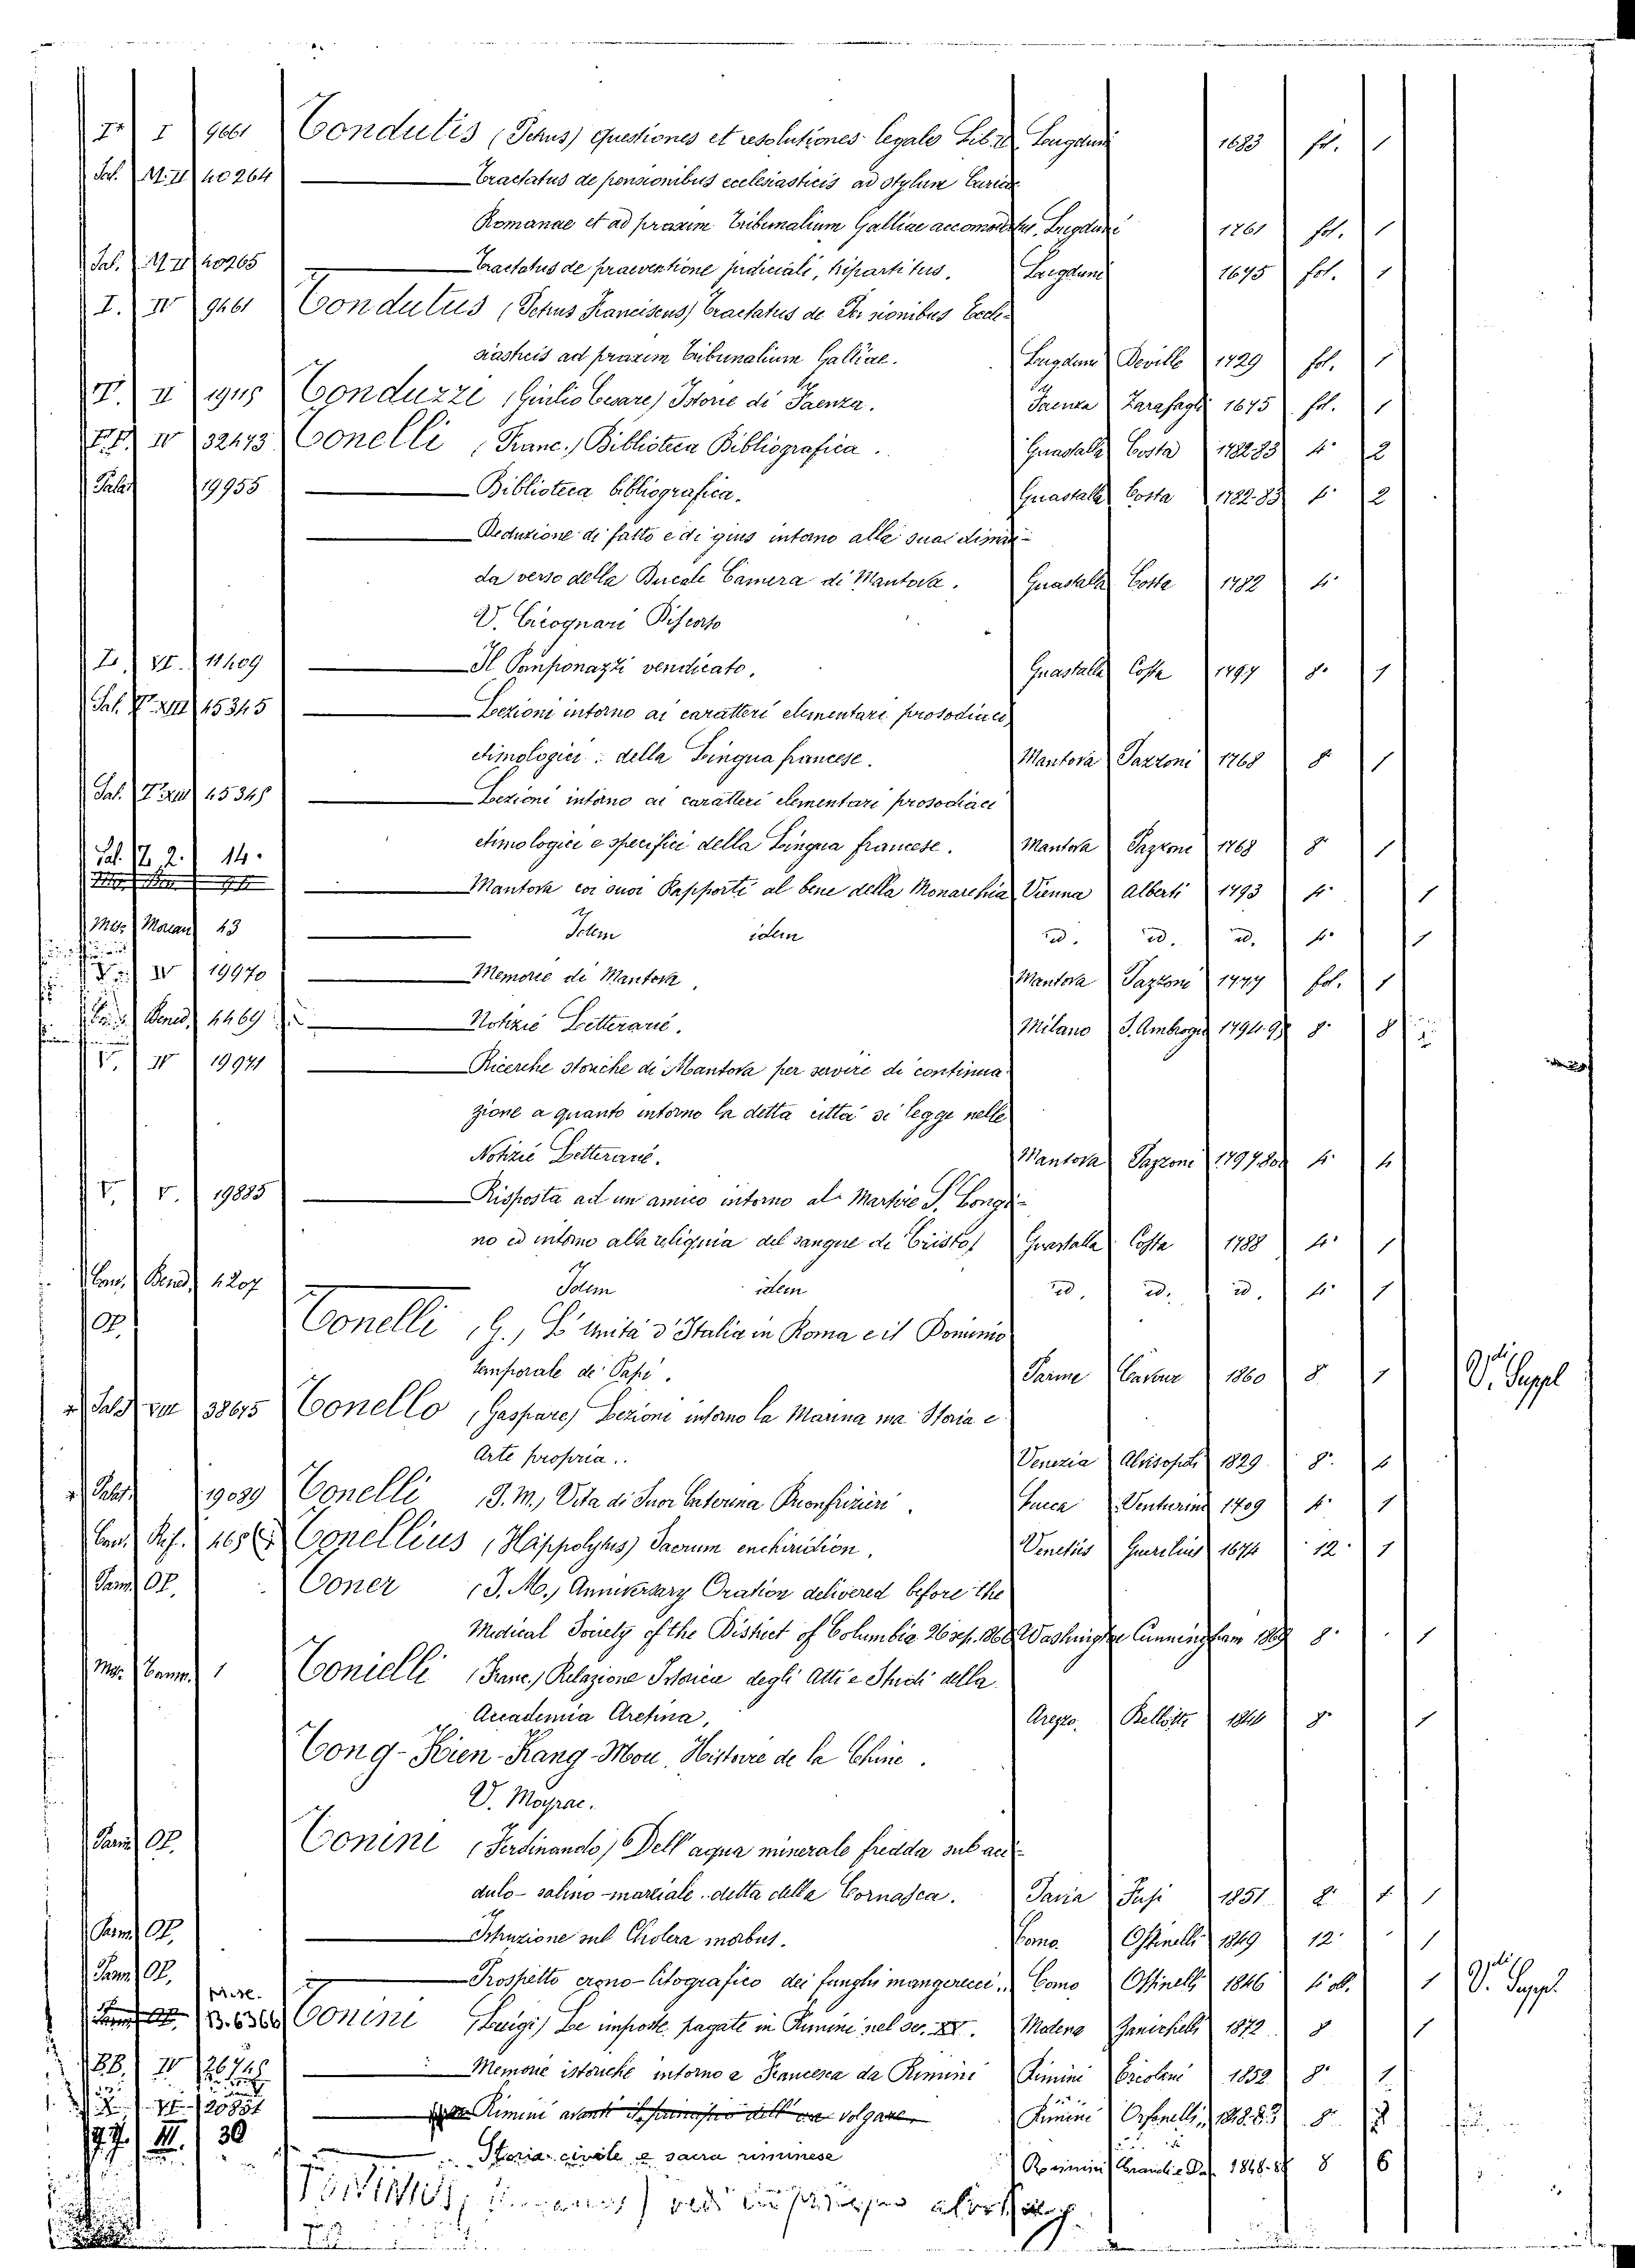 I I 9661 Condutis (Petrus) questiones et resolutiones legales Lib. Lugduni 1683 fol. 1
Sal. M. II 40264 Tractatus de pensionibus ecclesiasticis ad stylum Curiae
Romanae et ad praxim Tribunalium Galliae Lugduni 1761 fol. 1
Sal. M II 40265 Tractatus de praeventione judiciali, bipartitus. Lugduni 1695 fol. 1
I. IV 9461 Tondutus (Petrus Franciscus) Tractatus de Pensionibus Eccle-
siasticis ad praxim Tribunalium Galliae. Lugduni Deville 1729 fol. 1
V. II Tonduzzi (Giulio Cesare) Istorie di Faenza. Faenza Zarafagli 1675 fol. 1
IV 32473 Tonelli (Franc.) Biblioteca Bibliografica. Guastalla Costa 1782-83 4° 2
Palat 19955 Biblioteca bibliografica. Guastalla Costa 1782-83 4° 2
Deduzione di fatto e di gius intorno alla
da verso della Ducale Camera di Mantova. Guastalla Costa 1782 4°
V. Discorso
VI. 11409 Il Pomponazzi vendicato. Guastalla Costa 1797 8° 1
Sal. V. XIII 45345 Lezioni intorno ai caratteri elementari prosodiaci,
etimologici della Lingua francese. Mantova Pazzoni 1768 8° 1
Sal. V. XIII 45345 Lezioni intorno ai caratteri elementari prosodiaci
etimologici e specifici della Lingua francese. Mantova Pazzoni 1768 8° 1
Sal. Z. 2. 14.
Mantova coi suoi Rapporti al bene della Monarchia Vienna Alberti 1793 4° 1
Misc. Moreau 43 Idem idem id. id. id. 4° 1
V. IV 19970 Memorie di Mantova. Mantova Pazzoni 1777 fol. 1
Bened. 4469 Notizie Letterarie. Milano S. Ambrogio 8° 8
V. IV 19971 Ricerche storiche di Mantova per servire di continua-
zione a quanto intorno la detta città si legge nelle
Notizie Letterarie. Mantova Pazzoni 1797-800 4° 4
V. V. 19885 Risposta ad un amico intorno al Martire S. Longi-
no ed intorno alla reliquia del sangue di Cristo Guastalla Costa 1788 4° 1
Can. Bened. 4207 Idem idem id. id. id. 4° 1
OP. Tonelli (G.) L'Unità d'Italia in Roma e il Dominio
temporale de' Papi. Parma Cavour 1860 8 1 V. di Suppl
Sal. VIII 38675 Tonello (Gaspare) Lezioni intorno la Marina sua Storia e
Arte propria. Venezia Alvisopoli 1829 8° 4
Palat. 19089 Tonelli (I. M.) Vita di Suor Caterina Buonfrizieri. Lucca Venturini 1709 4° 1
Can. Rif. Tonellius (Happolytus) Sacrum enchiridion. Venetiis Guerilius 1674 12° 1
Parm. OP. Toner (J. M.) Anniversary Oration delivered before the
Medical Society of the District of Columbia 26 sep. 1866 Washington Cunningham 1869 8° 1
Misc. Comm. 1 Tonielli (Franc.) Relazione Istorica degli Atti e Studi della
Accademia Aretina. Arezzo. Bellotti 8° 1
Tong-Kien-Kang-Mou, Histoire de la Chine.
V. Moyrac.
Parm. OP. Tonini (Ferdinando) Dell' acqua minerale fredda sub aci-
dulo-salino-marziale detta della Cornasca. Pavia Fusi 1851 8° 1 1
Parm. OP. Istruzione sul Cholera morbus. Como. Ostinelli 1849 12° 1
Parm. OP. Prospetto crono-litografico dei funghi mangerecci. Como Ostinelli 1846 4° obl. 1 V. di Suppl.
Misc. B. 6366 Tonini (Luigi) Le imposte pagate in Rimini nel sec. XV. Modena Zanichelli 1872 8 1
BB. IV 26746 Memorie istoriche intorno a Francesca da Rimini Rimini Ercolani 1852 8° 1
VI 20851 Rimini avanti il principio dell' era volgare. Rimini Orfanelli 8° 2
III. 30 Storia civile e sacra riminese Rimini 1848-88 8 6